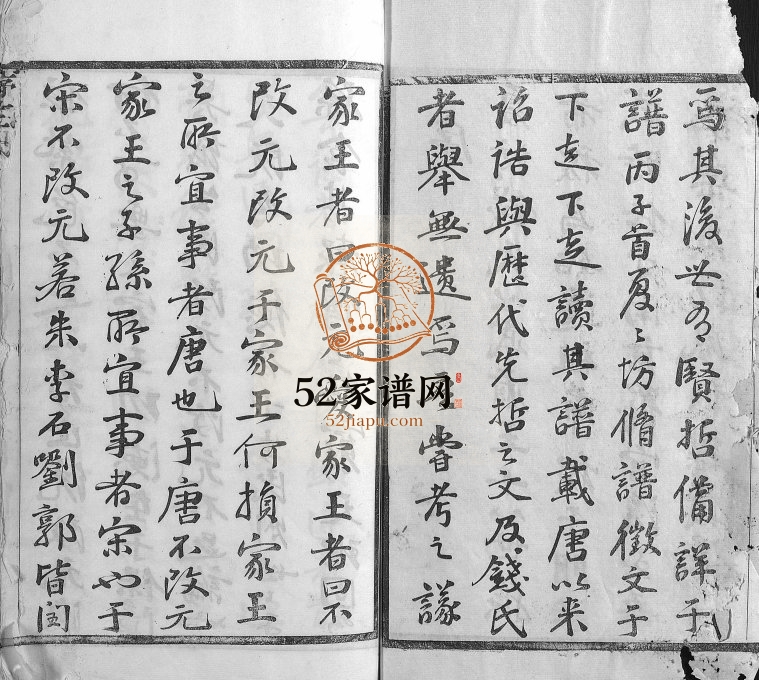 焉其後世有賢哲備詳于
譜丙子首夏夏坊脩譜徵文于
下走下走讀其譜載唐以来
詔誥與歷代先哲之文及錢氏
者舉無遺焉嘗考之議
家王者曰改元家王者曰不
改元改元于家王何損家王
之所宜事者唐也于唐不改元
家王之子孫所宜事者宋也于
宋不改元若朱李石劉郭皆閏
52家谱网
52jiapu.com